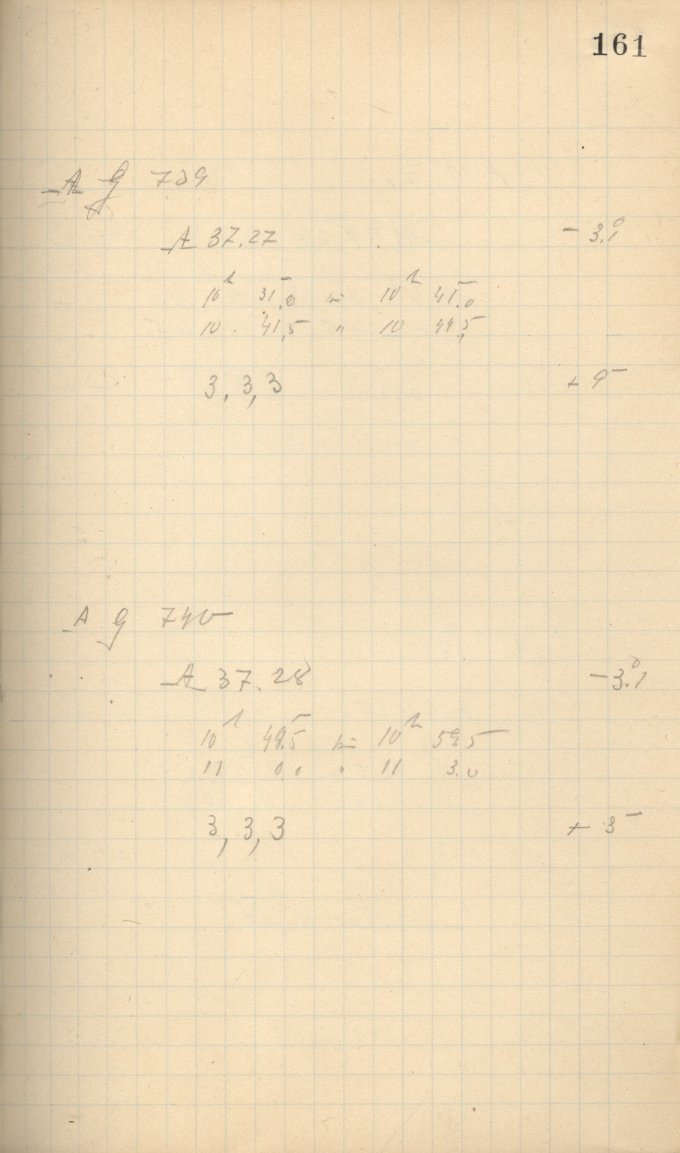 161
A G 739
A 37.27 - 3.°1
10ʰ 31,0 bis 10ʰ 41,0
10 41,5 " 10 44,5
3, 3, 3 + 9
A G 740
A 37.28 - 3.°1
10ʰ 49.5 bis 10ʰ 59.5
11 0.0 " 11 3.0
3, 3, 3 + 3